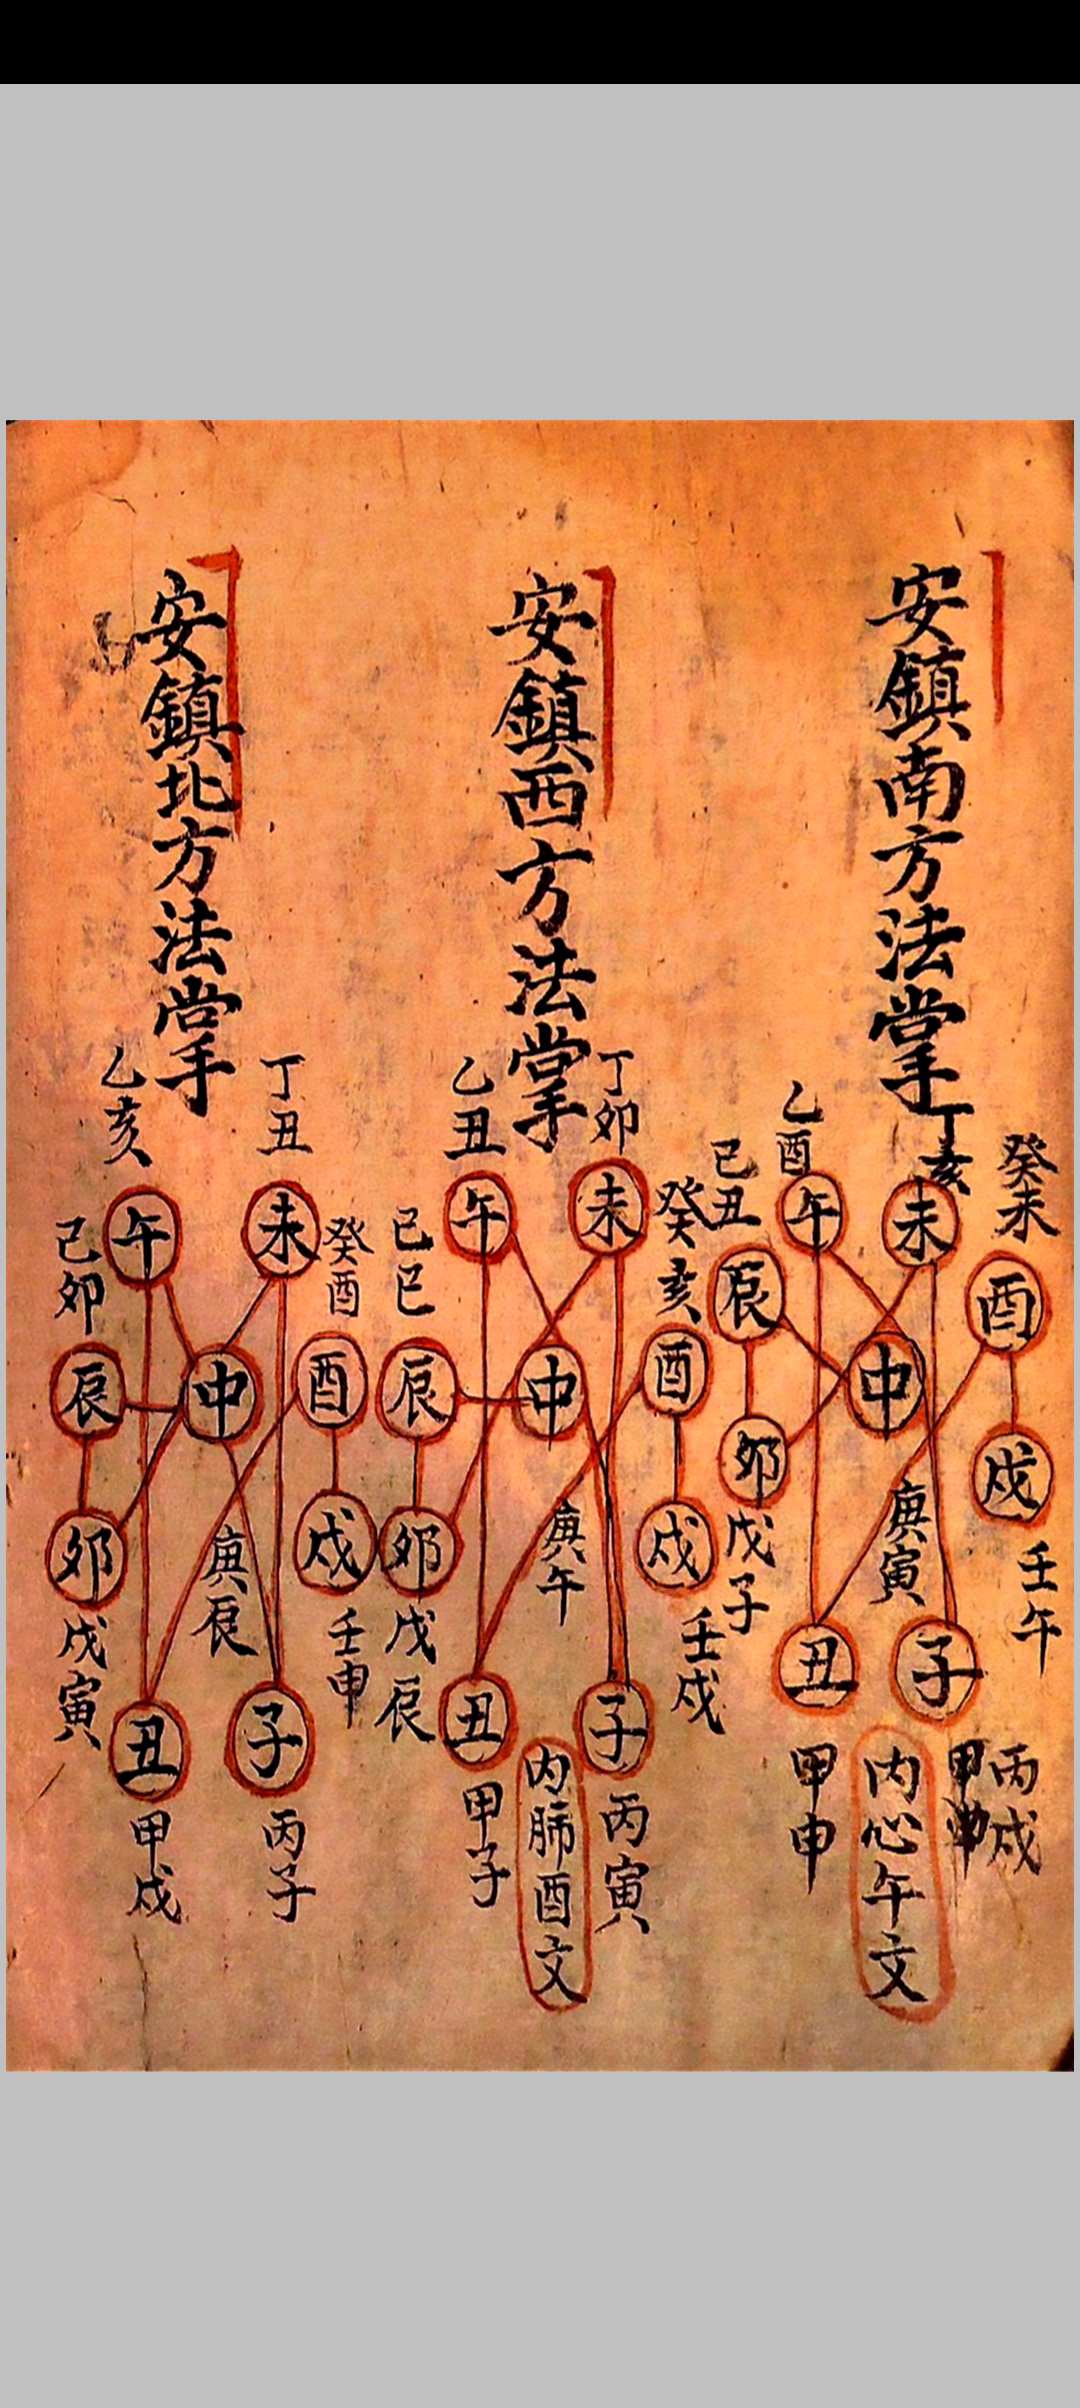 安鎮南方法掌
丁亥
癸未
乙酉
己丑
未
午
酉
辰
中
卯
戌
戊子
庚寅
壬午
子
丑
丙戌
甲申
内心午文
安鎮西方法掌
丁卯
乙丑
癸亥
己巳
未
午
酉
辰
中
戌
卯
庚午
壬戌
戊辰
子
丑
丙寅
甲子
内肺酉文
安鎮北方法掌
丁丑
乙亥
癸酉
己卯
未
午
酉
中
辰
戌
卯
庚辰
壬申
戊寅
子
丑
丙子
甲戌